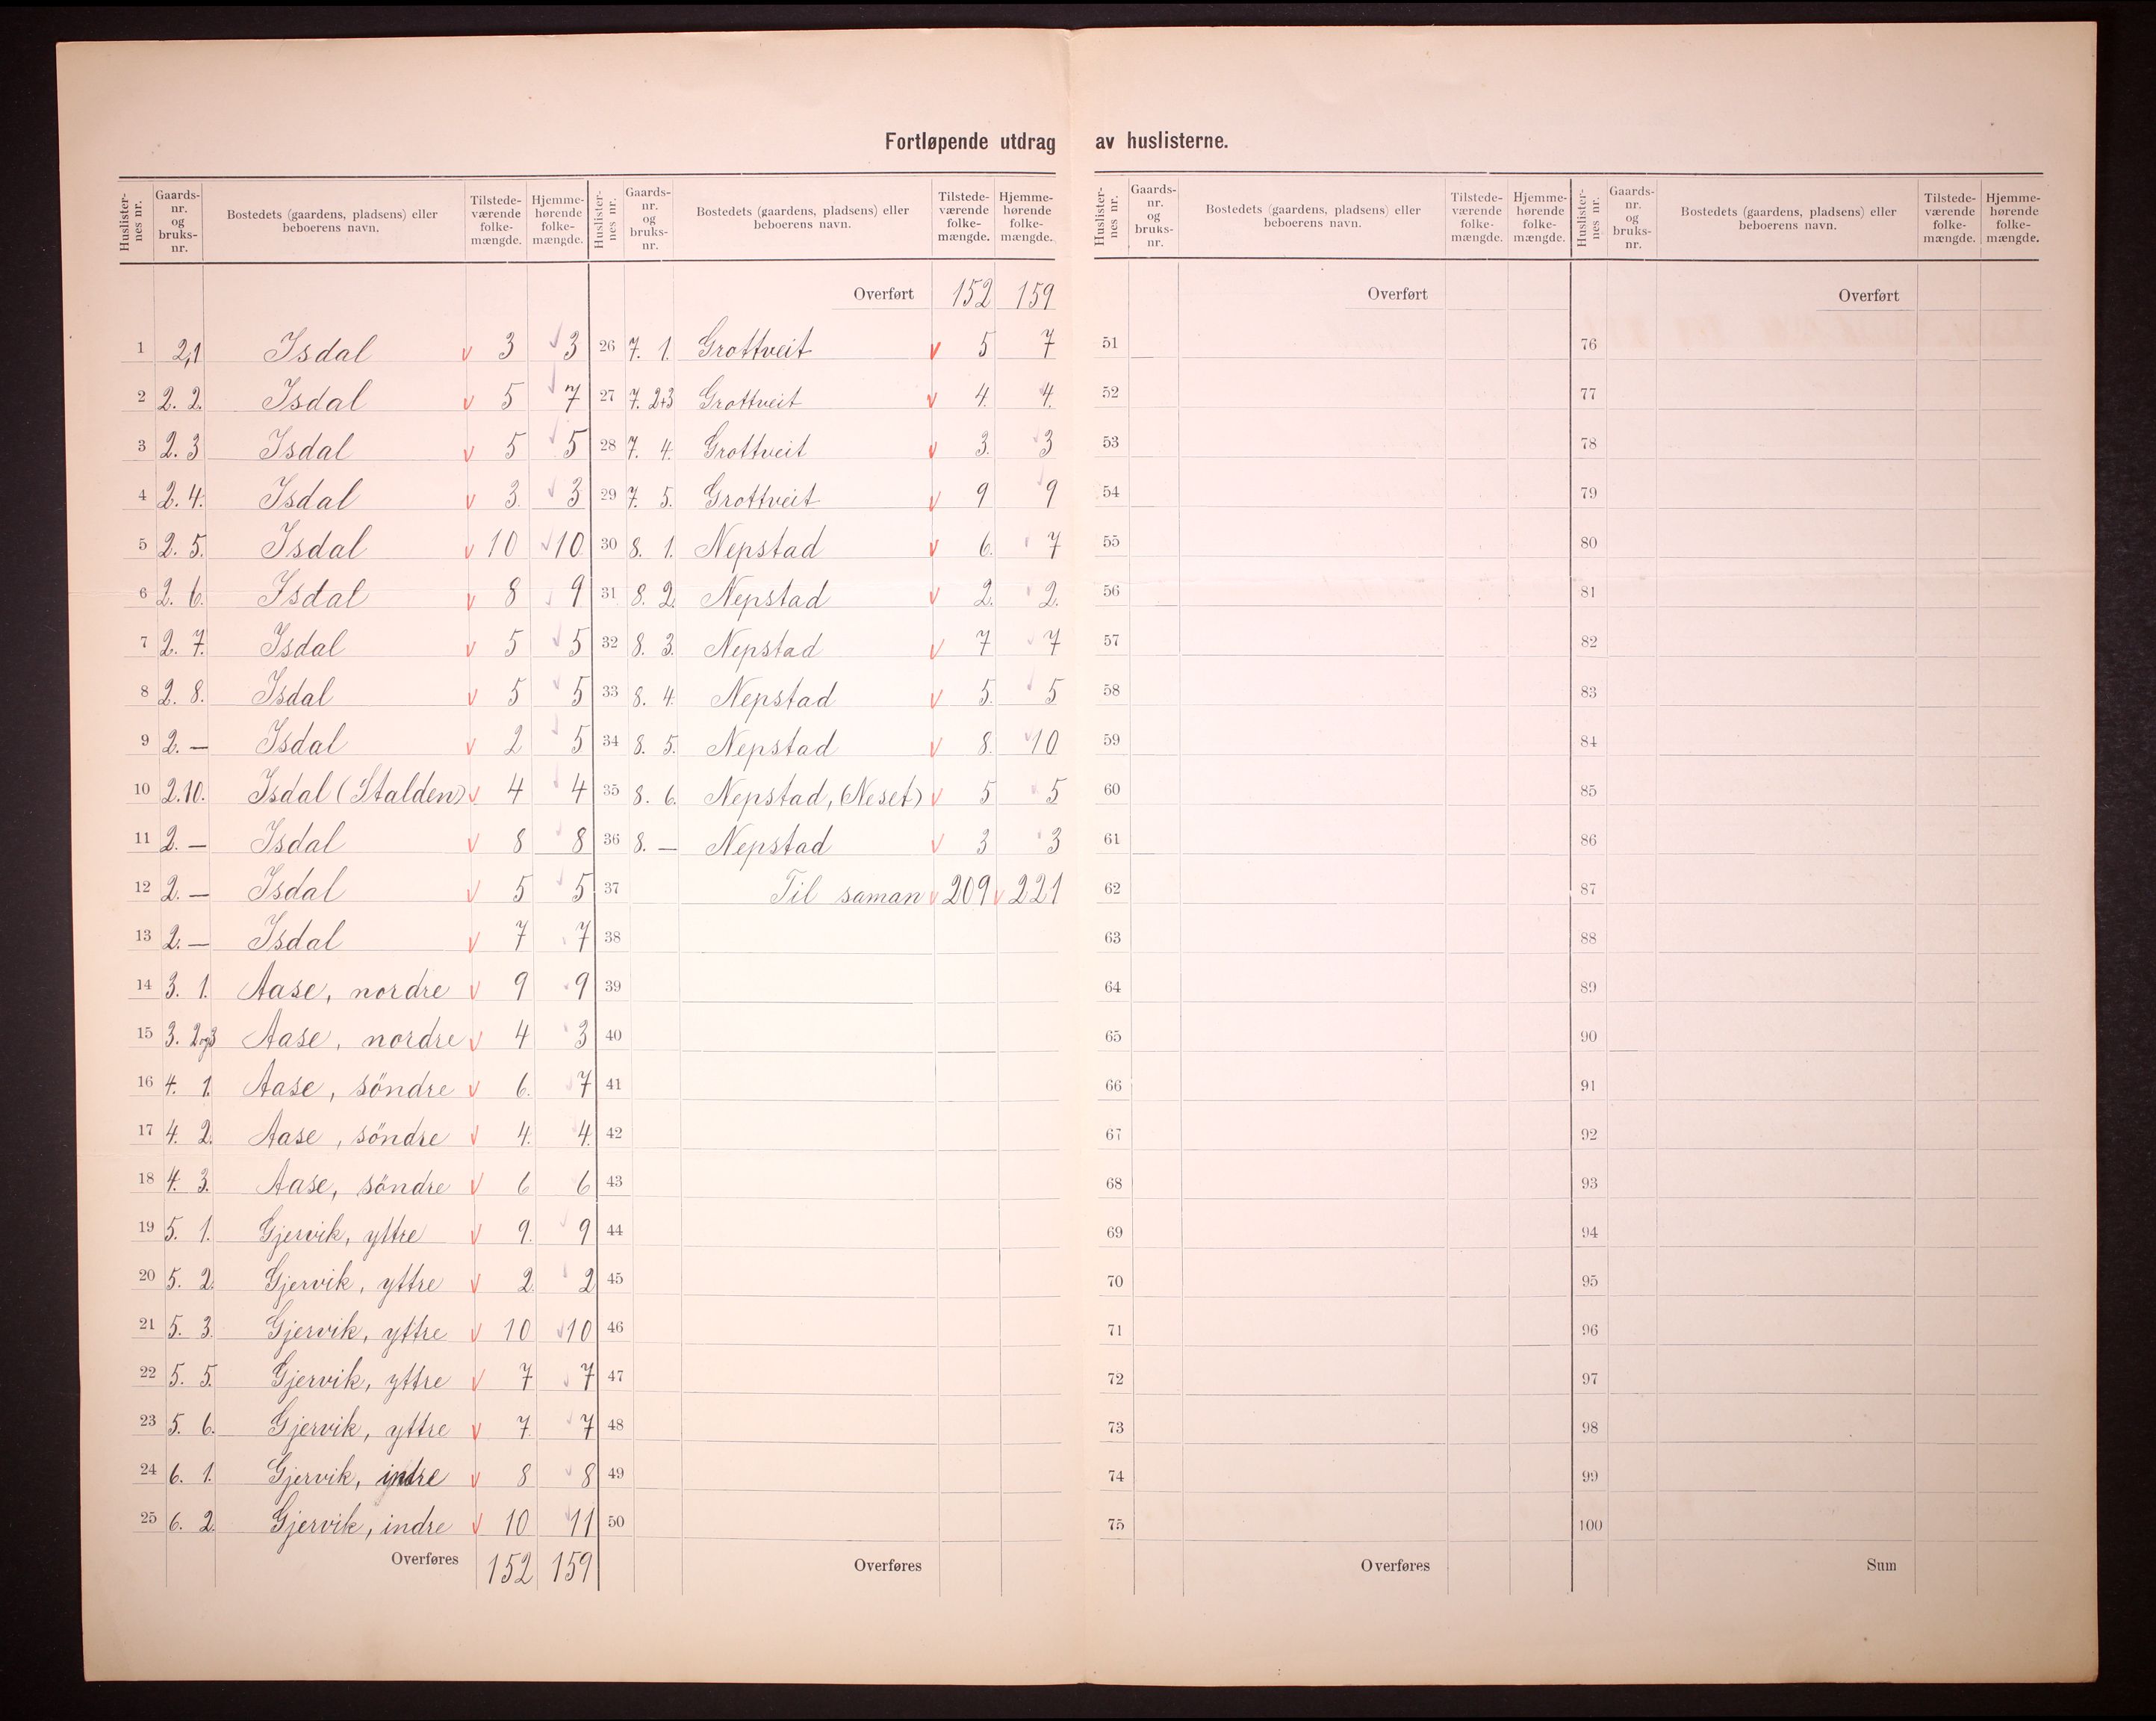 Fortløpende utdrag av huslisterne.
Huslister-nes nr. Gaards-nr. og bruks-nr. Bostedets (gaardens, pladsens) eller beboerens navn. Tilstede-værende folke-mængde. Hjemme-hørende folke-mængde.
1 2,1 Isdal v 3 3
2 2. 2. Isdal v 5 7
3 2. 3 Isdal v 5 5
4 2. 4. Isdal v 3. 3
5 2. 5. Isdal v 10 10
6 2. 6. Isdal v 8 9
7 2. 7. Isdal v 5 5
8 2. 8. Isdal v 5 5
9 2. — Isdal v 2 5
10 2.10. Isdal (Stalden) v 4 4
11 2. — Isdal v 8 8
12 2. — Isdal v 5 5
13 2. — Isdal v 7 7
14 3. 1. Aase, nordre v 9 9
15 3. 2og3 Aase, nordre v 4 3
16 4. 1. Aase, söndre v 6. 7
17 4. 2. Aase, söndre v 4. 4.
18 4. 3. Aase, söndre v 6 6
19 5. 1. Gjervik, yttre v 9. 9
20 5. 2. Gjervik, yttre v 2. 2
21 5. 3. Gjervik, yttre v 10 10
22 5. 5. Gjervik, yttre v 7 7
23 5. 6. Gjervik, yttre v 7. 7
24 6. 1. Gjervik, indre v 8 8
25 6. 2. Gjervik, indre v 10 11
Overføres 152 159
Huslister-nes nr. Gaards-nr. og bruks-nr. Bostedets (gaardens, pladsens) eller beboerens navn. Tilstede-værende folke-mængde. Hjemme-hørende folke-mængde.
Overført 152 159
26 7. 1. Grottveit v 5 7
27 7. 2+3 Grottveit v 4. 4.
28 7. 4. Grottveit v 3. 3
29 7. 5. Grottveit v 9 9
30 8. 1. Nepstad v 6. 7
31 8. 2. Nepstad v 2. 2.
32 8. 3. Nepstad v 7 7
33 8. 4. Nepstad v 5. 5
34 8. 5. Nepstad v 8. 10
35 8. 6. Nepstad, (Neset) v 5 5
36 8. — Nepstad v 3 3
37 Til saman v 209 v 221
38
39
40
41
42
43
44
45
46
47
48
49
50
Overføres
Huslister-nes nr. Gaards-nr. og bruks-nr. Bostedets (gaardens, pladsens) eller beboerens navn. Tilstede-værende folke-mængde. Hjemme-hørende folke-mængde.
Overført
51
52
53
54
55
56
57
58
59
60
61
62
63
64
65
66
67
68
69
70
71
72
73
74
75
Overføres
Huslister-nes nr. Gaards-nr. og bruks-nr. Bostedets (gaardens, pladsens) eller beboerens navn. Tilstede-værende folke-mængde. Hjemme-hørende folke-mængde.
Overført
76
77
78
79
80
81
82
83
84
85
86
87
88
89
90
91
92
93
94
95
96
97
98
99
100
Sum